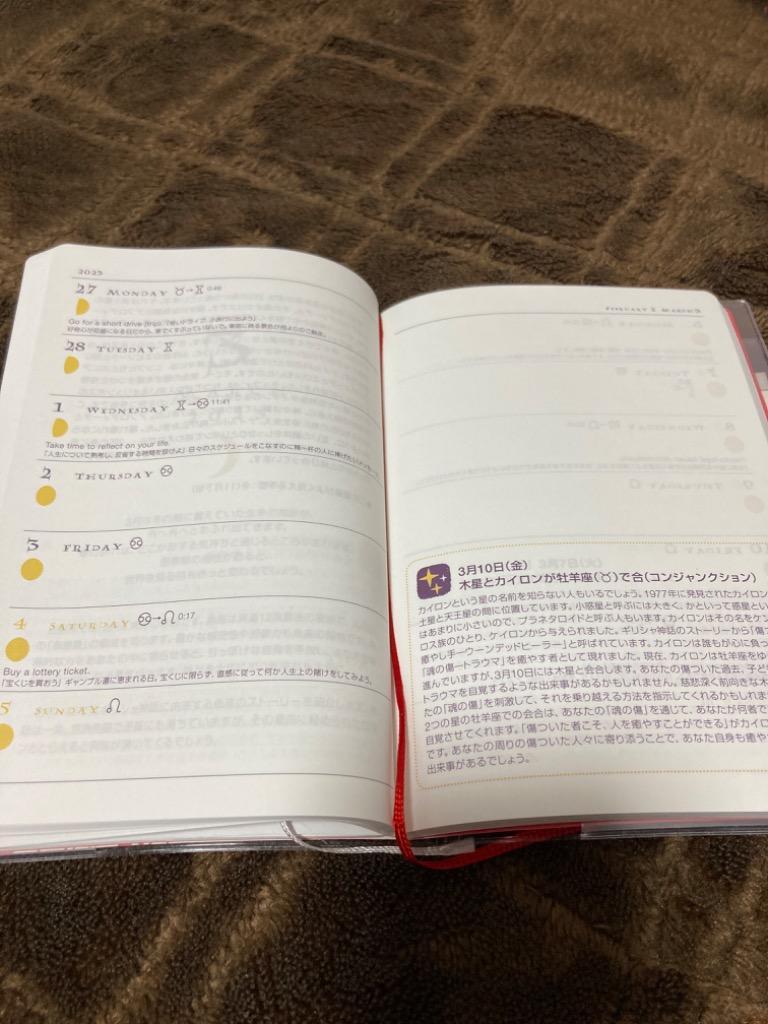 2023
27 MONDAY ♉→♊ 0:48
Go for a short drive (trip).
28 TUESDAY ♊
1 WEDNESDAY ♊→♋ 11:41
Take time to reflect on your life.
「人生について熟考し、反省する時間を設けよ」日々のスケジュールをこなすのに精一杯の人に捧げたい
2 THURSDAY ♋
3 FRIDAY ♋
4 SATURDAY ♋→♌ 0:17
Buy a lottery ticket.
「宝くじを買おう」ギャンブル運に恵まれる日。宝くじに限らず、直感に従って何か人生上の賭けをしてみよう。
5 SUNDAY ♌
FEBRUARY / MARCH
3月10日(金)
木星とカイロンが牡羊座(♈)で合(コンジャンクション)
カイロンという星の名前を知らない人もいるでしょう。1977年に発見されたカイロン
土星と天王星の間に位置しています。小惑星と呼ぶには大きく、かといって惑星とい
はあまりに小さいので、プラネタロイドと呼ぶ人もいます。カイロンはその名をケン
ロス族のひとり、ケイロンから与えられました。ギリシャ神話のストーリーから「傷
癒やし手－ウーンデッドヒーラー」と呼ばれています。カイロンは誰もが心に負っ
「魂の傷－トラウマ」を癒やす者として現れました。現在、カイロンは牡羊座をゆ
進んでいますが、3月10日には木星と会合します。あなたの傷ついた過去、子ど
トラウマを自覚するような出来事があるかもしれません。慈悲深く前向きな木
たの「魂の傷」を刺激して、それを乗り越える方法を指示してくれるかもしれま
2つの星の牡羊座での会合は、あなたの「魂の傷」を通じて、あなたが何者で
自覚させてくれます。「傷ついた者こそ、人を癒やすことができる」がカイロ
です。あなたの周りの傷ついた人々に寄り添うことで、あなた自身も癒や
出来事があるでしょう。